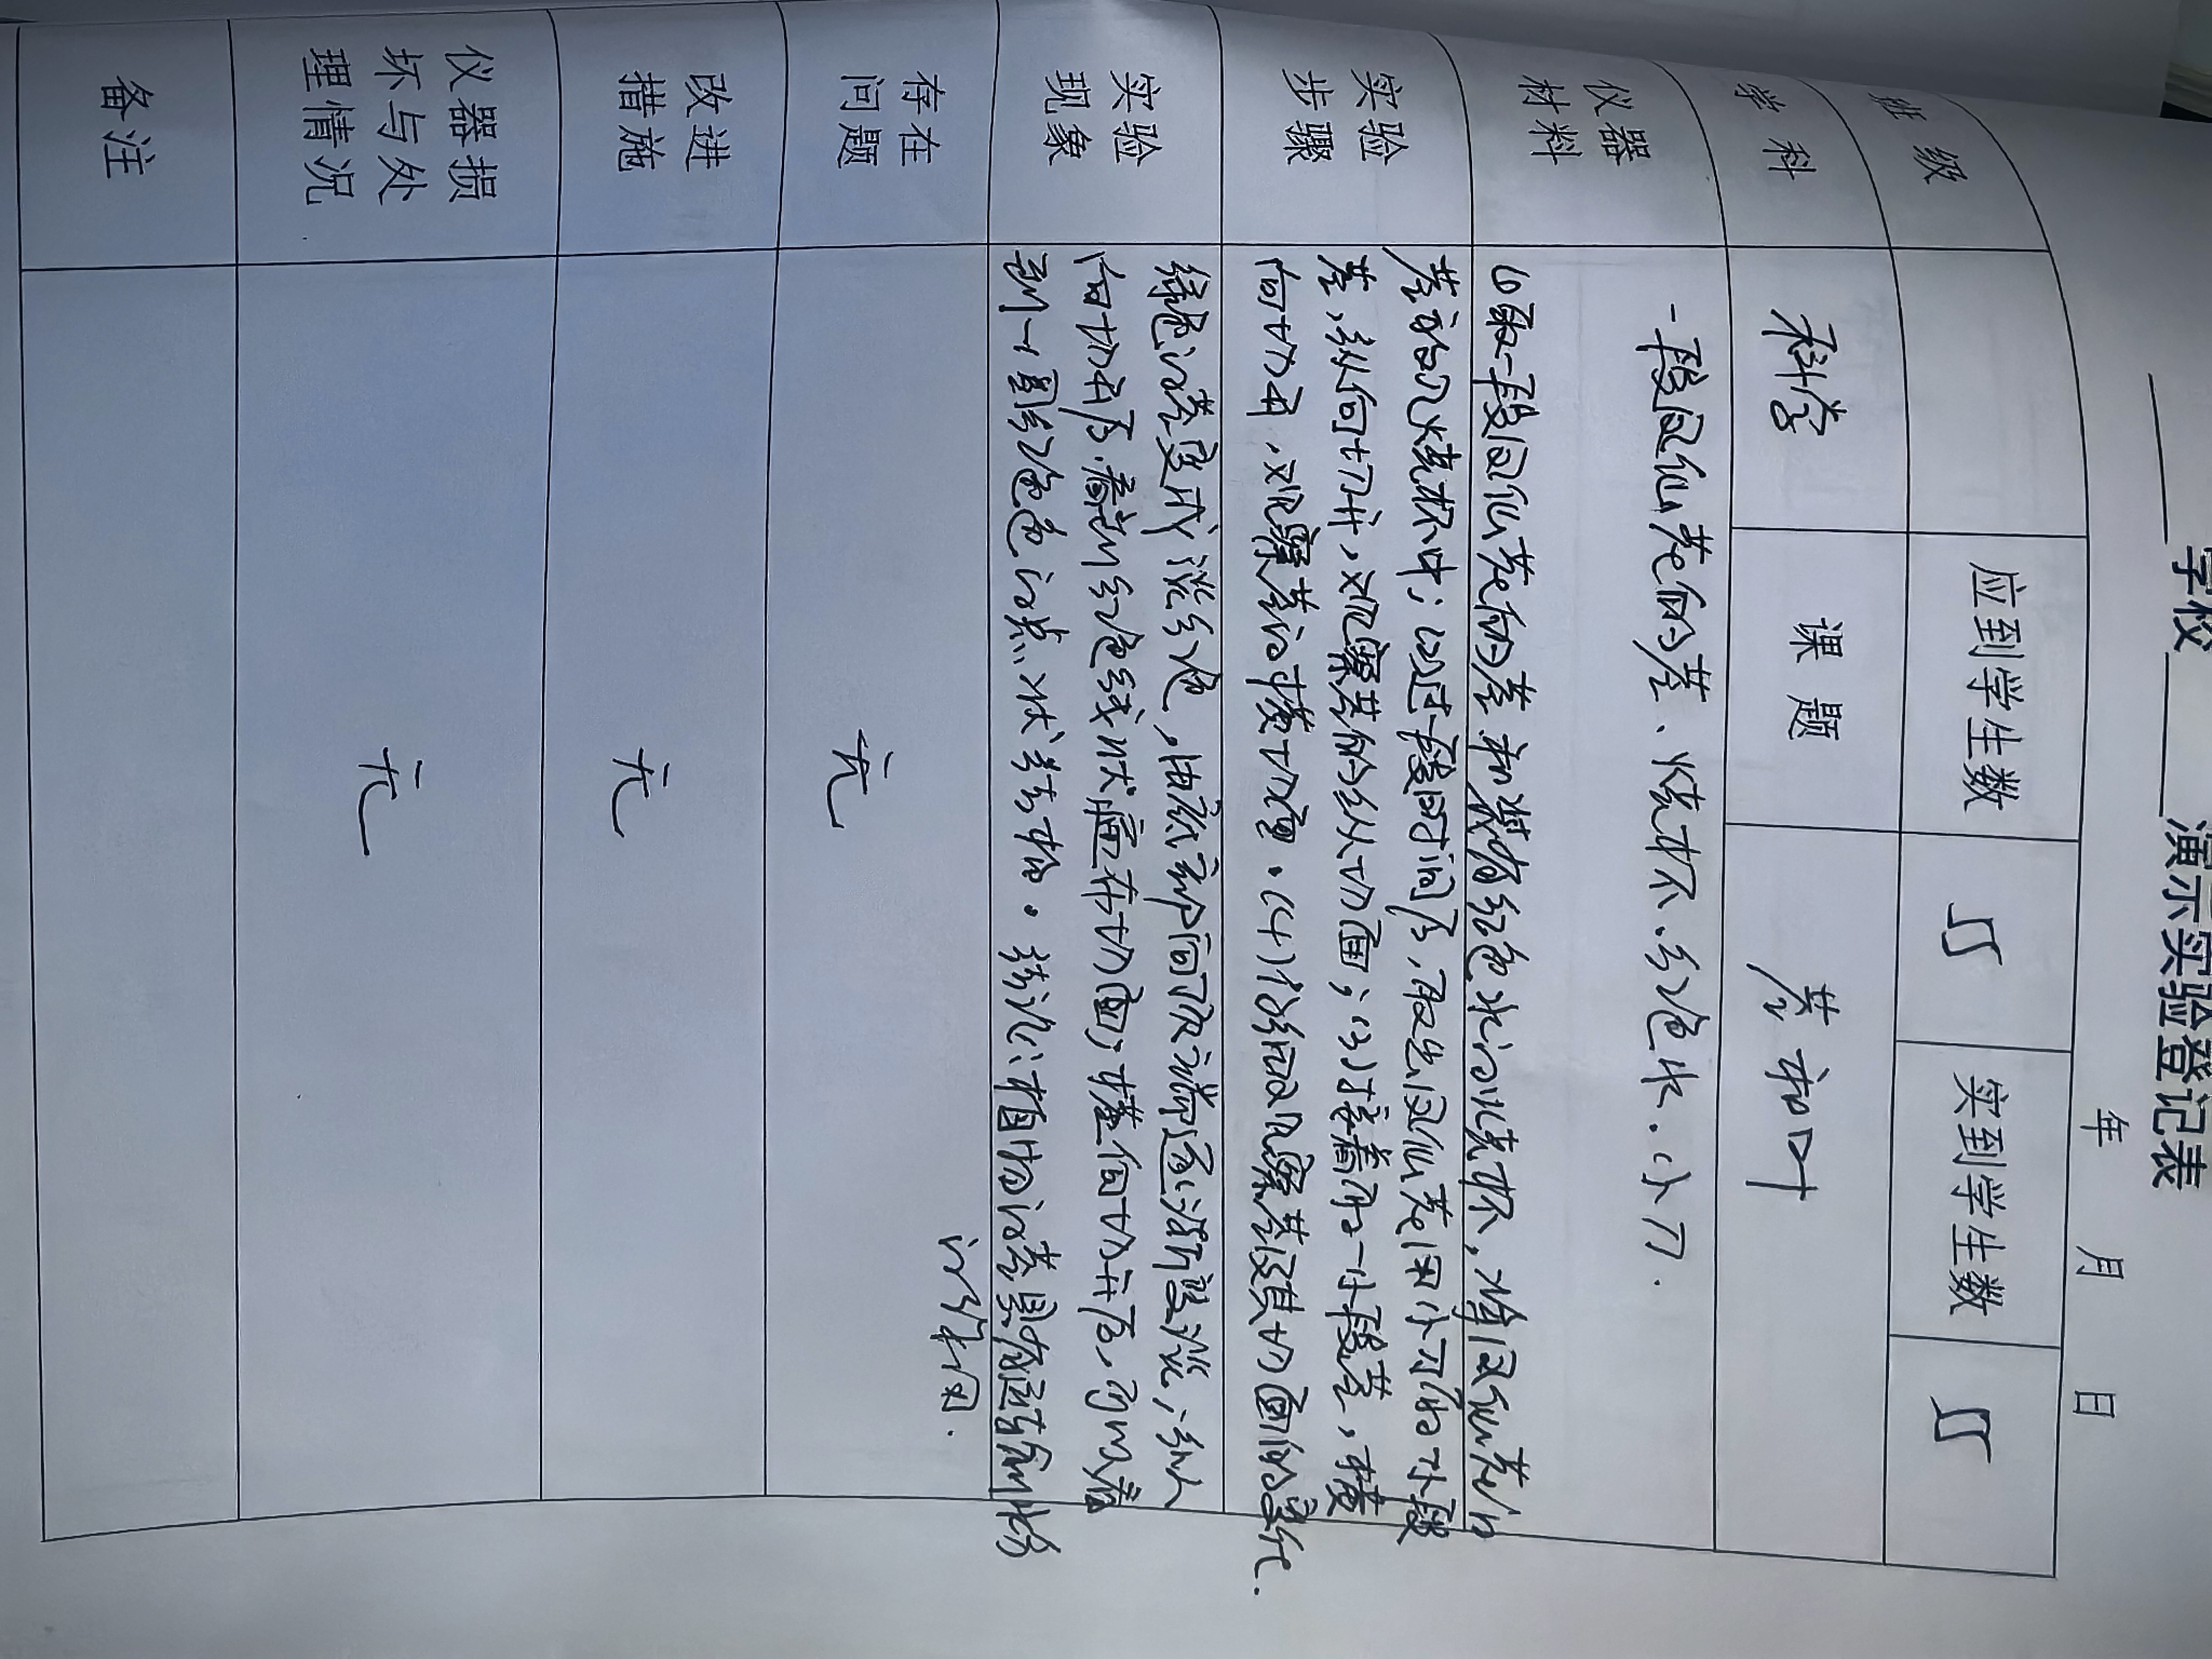 学校 演示实验登记表
年 月 日
班级 应到学生数 55 实到学生数 55
学科 科学 课题 茎和叶
仪器材料 一段凤仙花的茎、烧杯、红色水、小刀.
实验步骤 (1)取一段凤仙花的茎和装有红色水的烧杯,将凤仙花的
茎放入烧杯中;(2)过一段时间后,取出凤仙花用小刀削取小段
茎,纵向切开,观察茎的纵切面;(3)接着削一小段茎,横
向切开,观察茎的横切面.(4)仔细观察茎纵横切面的变化.
实验现象 绿色的茎变成淡红色,由底部向顶端逐渐变淡;纵
向切开后,看到红色线状遍布切面;横向切开后,可以看
到一圈红色的点状结构。结论:植物的茎具有运输水分
的作用.
存在问题 无
改进措施 无
仪器损坏与处理情况 无
备注